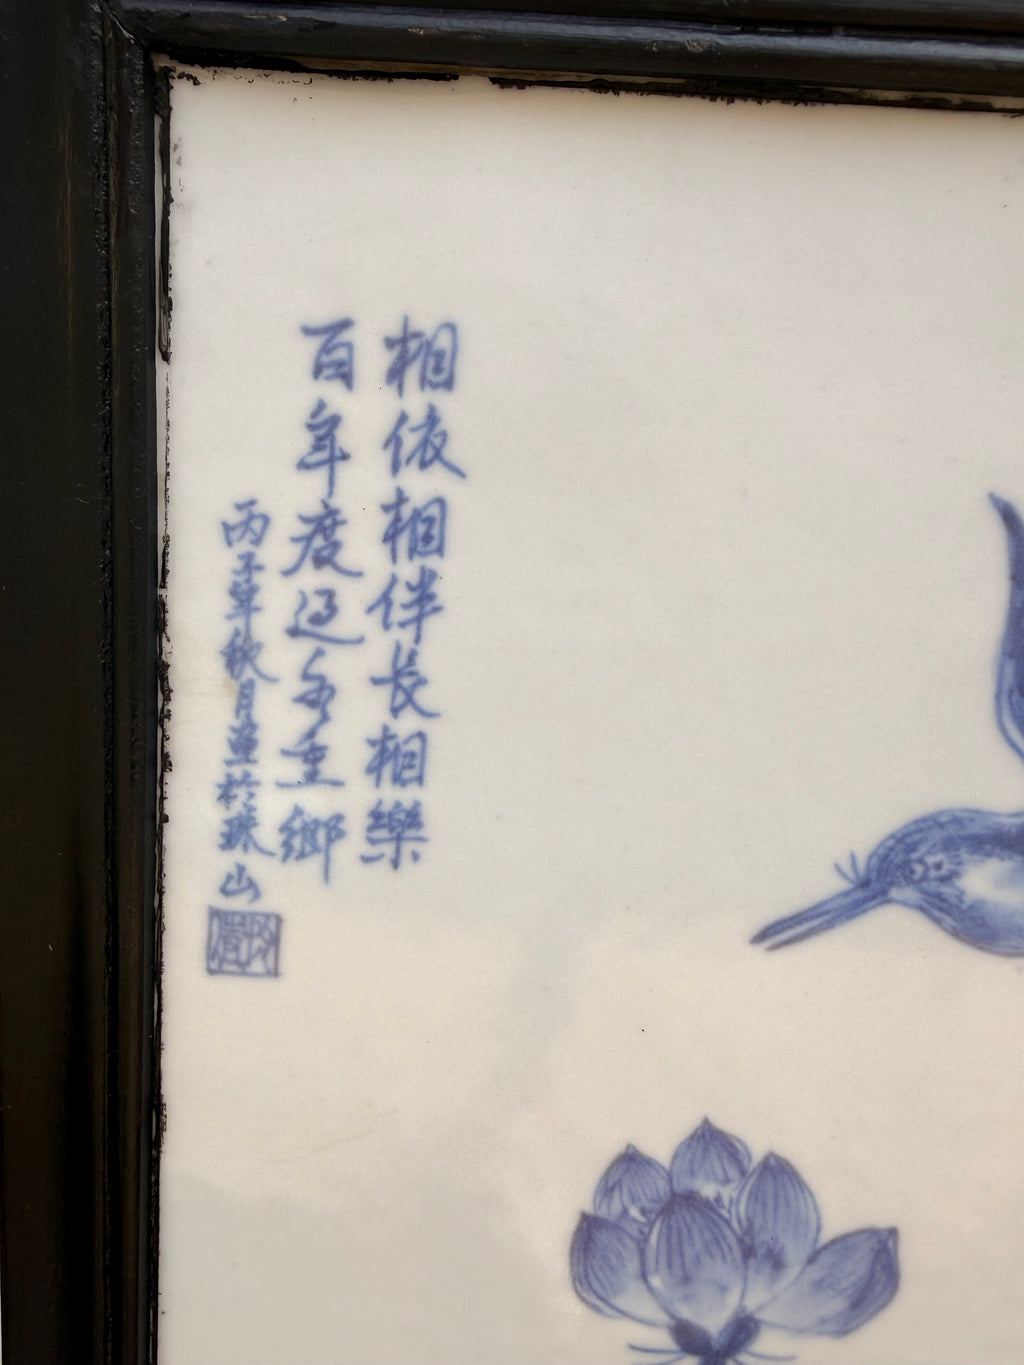 相依相伴長相樂
百年度重鄉
丙子年秋月画於珠山